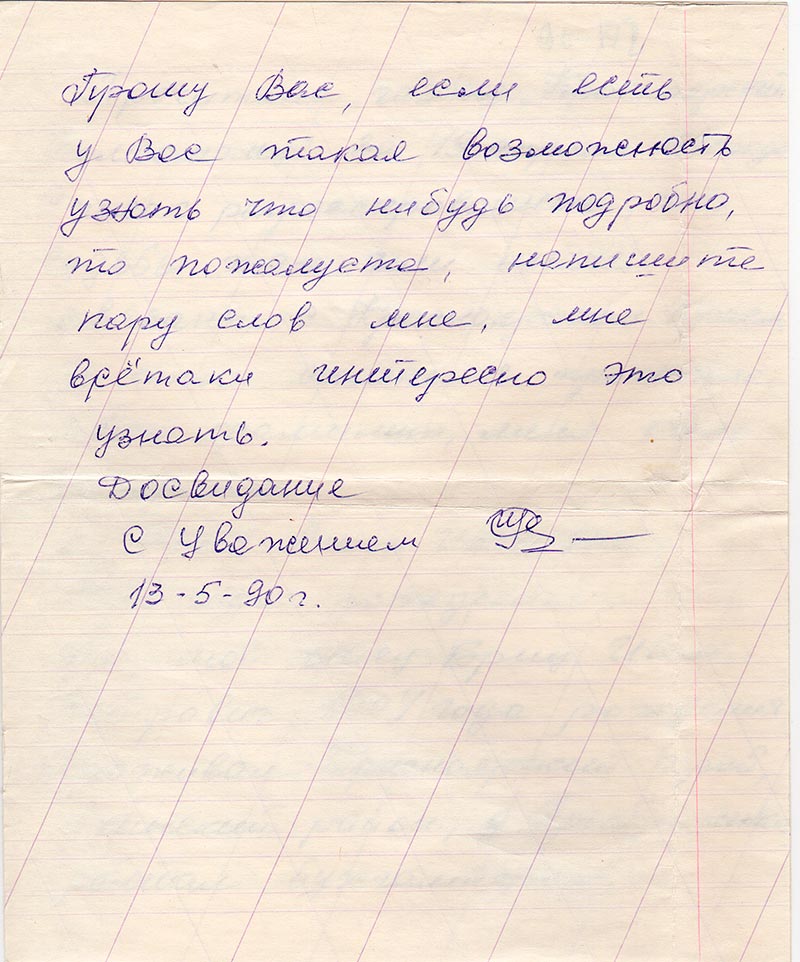 Прошу Вас, если есть
у Вас такая возможность
узнать что нибудь подробно,
то пожалуста, напишите
пару слов мне, мне
всётаки интересно это
узнать.
Досвидание
С Уважением
13-5-90 г.